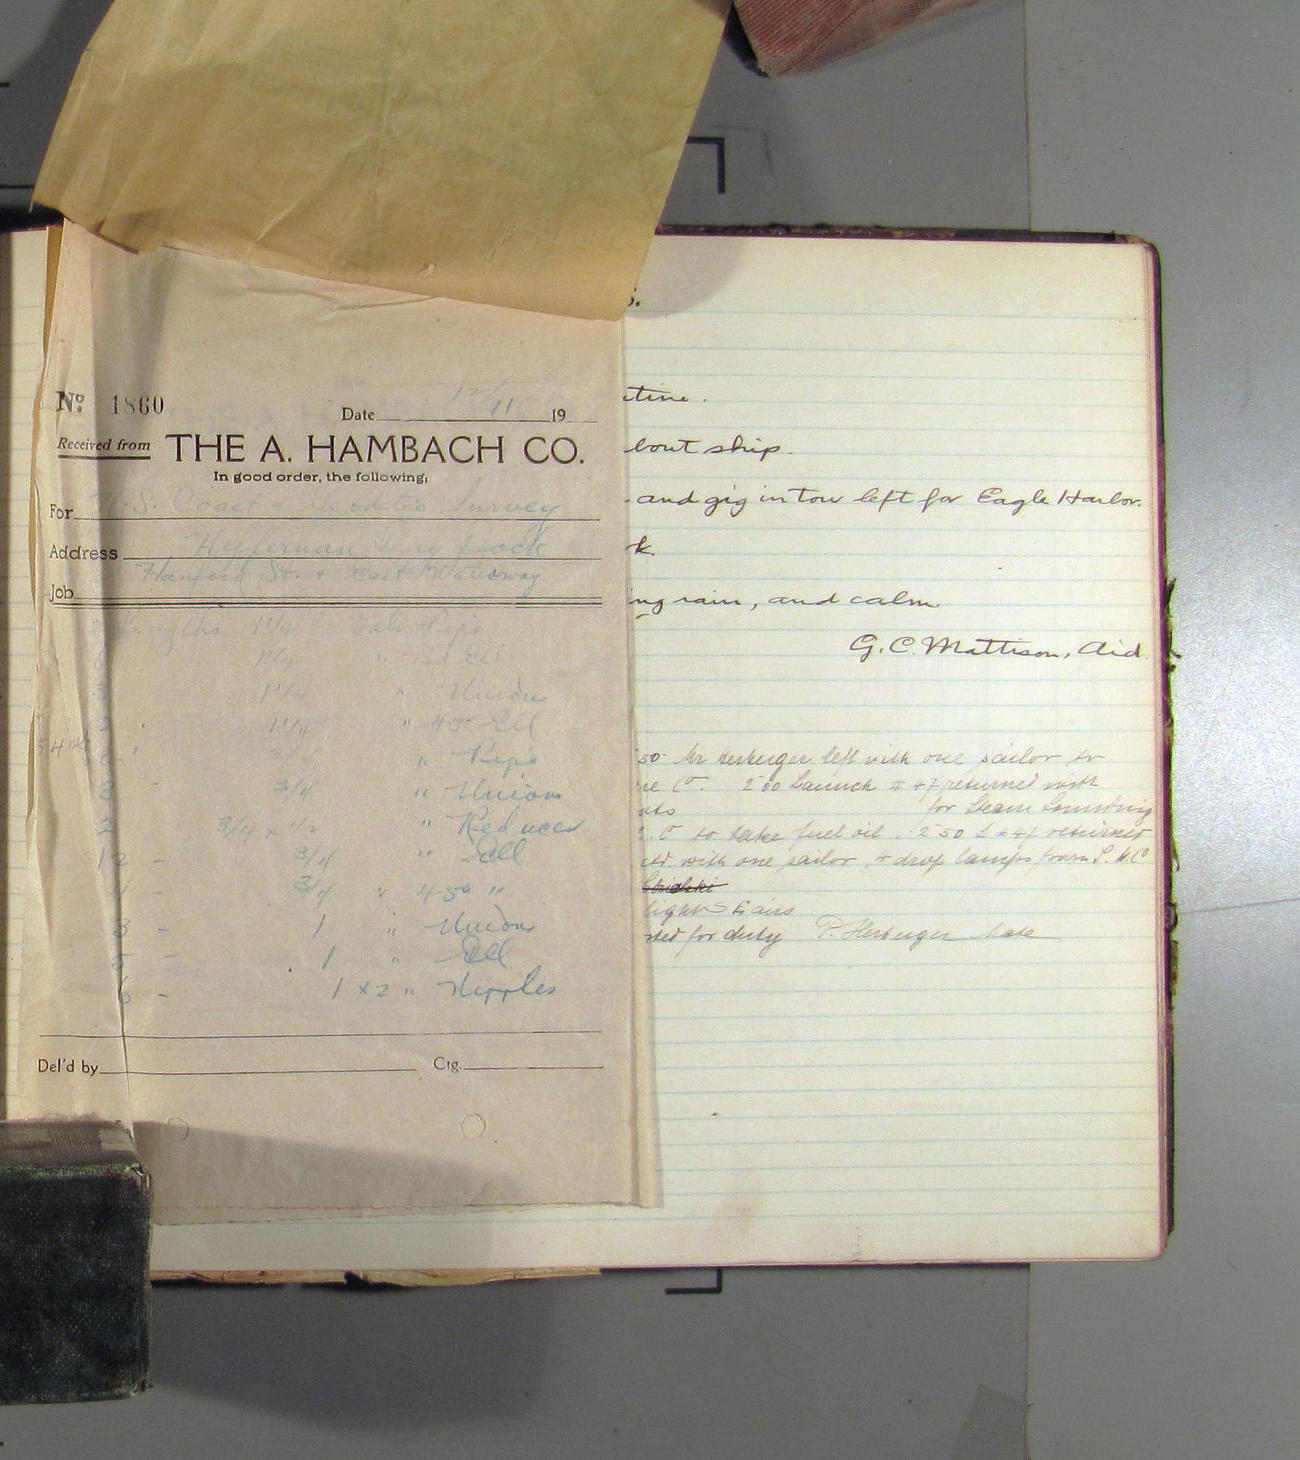 Nº 1860
Date 12/11 19
Received from THE A. HAMBACH CO.
In good order, the following,
For U.S. Coast & Geodetic Survey
Address Heffernan Dry Dock
Hanford St. & East Waterway
Job
Lengths 1 1/4 Galv Pipe
1 1/4 " Ell
1 1/4 " Union
1 1/4 " 45° Ell
" Pipe
3/4 " Union
3/4 x 1/2 " Reducer
12 - 3/4 " Ell
4 - 3/4 " 45° "
3 - 1 " Union
- 1 " Ell
6 - 1 x 2 " Nipples
Del'd by Ctg.
s.
tine.
bout ship.
and gig in tow left for Eagle Harbor.
k.
ing rain, and calm
G. C. Mattison, Aid.
50 Mr Herberger left with one sailor to
2 00 Launch # 47 returned with
for Steam Laundry
to take fuel oil. 2 50 L # 47 returned
with one sailor, + drop lamps from L. H. C
light stairs
ted for duty P. Herberger Mate